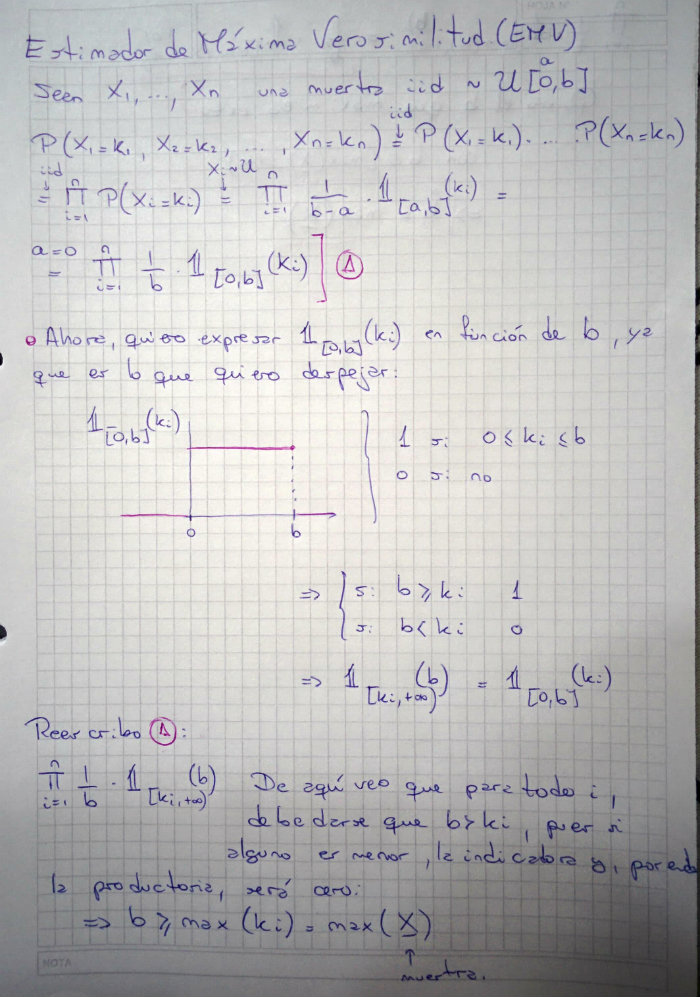 Estimador de Máxima Verosimilitud. (EMV)
Sean X₁, ..., Xn una muestra iid ~ U[0,b]
a
iid
P(X₁=k₁, X₂=k₂, ..., Xn=kn) = P(X₁=k₁). ... .P(Xn=kn)
iid Xi~U
= ∏ᵢ₌₁ⁿ P(Xi=ki) = ∏ᵢ₌₁ⁿ 1/(b-a) · 𝟙[a,b](ki) =
a=0
= ∏ᵢ₌₁ⁿ 1/b · 𝟙[0,b](ki) ] Δ
• Ahora, quiero expresar 𝟙[0,b](ki) en función de b, ya
que es b que quiero despejar:
𝟙[0,b](ki)
{ 1 si 0≤ki≤b
0 si no
0 b
⇒ { si b≥ki 1
si b<ki 0
⇒ 𝟙[ki,+∞)(b) = 𝟙[0,b](ki)
Reescribo Δ:
∏ᵢ₌₁ⁿ 1/b · 𝟙[ki,+∞)(b) De aquí veo que para todo i,
debe darse que b≥ki, pues si
alguno es menor, la indicadora y, por ende
la productoria, será cero:
⇒ b≥max(ki) = max(X)
↑
muestra.
NOTA